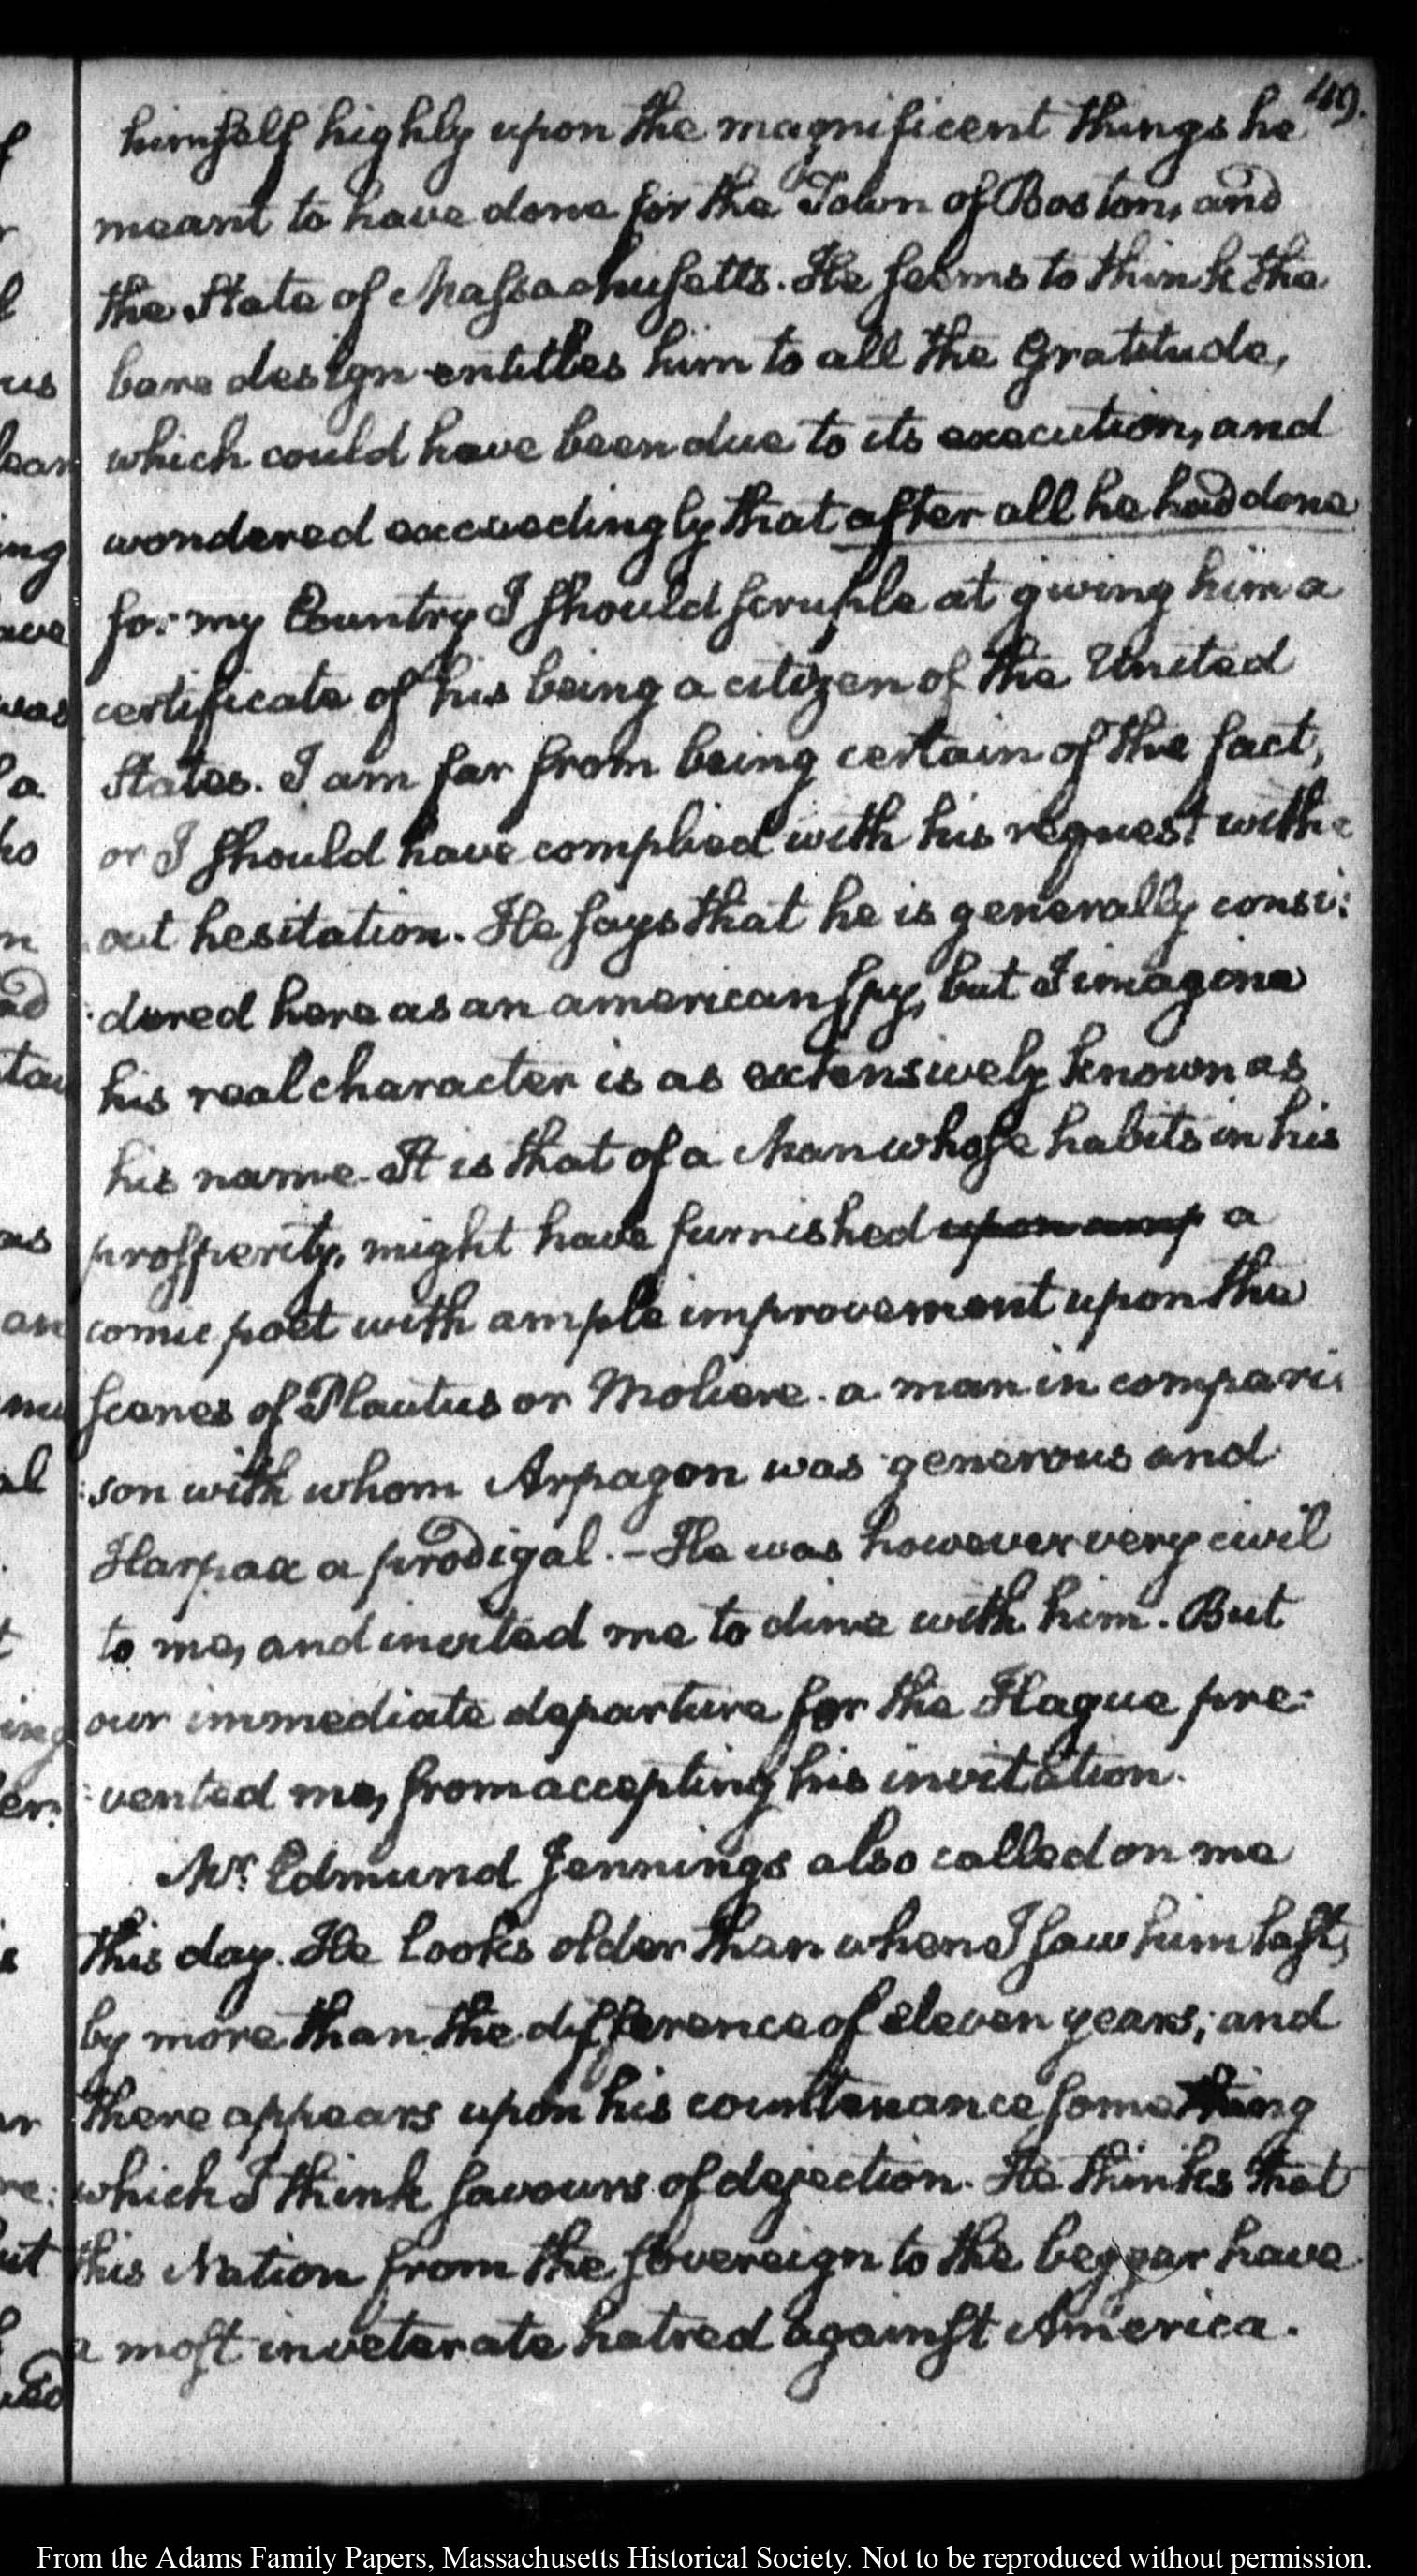 49.
himself highly upon the magnificent things he
meant to have done for the Town of Boston, and
the State of Massachusetts. He seems to think the
bare design entitles him to all the Gratitude,
which could have been due to its execution, and
wondered exceedingly that after all he had done
for my Country I should scruple at giving him a
certificate of his being a citizen of the United
States. I am far from being certain of the fact,
or I should have complied with his request with:
out hesitation. He says that he is generally consi:
:dered here as an american spy, but I imagine
his real character is as extensively known as
his name. It is that of a Man whose habits in his
prosperity, might have furnished upon amp a
comic poet with ample improvement upon the
scenes of Plautus or Moliere. a man in compari:
:son with whom Arpagon was generous and
Harpax a prodigal. – He was however very civil
to me, and invited me to dine with him. But
our immediate departure for the Hague pre:
:vented me, from accepting his invitation.
Mr. Edmund Jennings also called on me
this day. He looks older than when I saw him last,
by more than the difference of eleven years; and
there appears upon his countenance something
which I think savours of dejection. He thinks that
this Nation from the sovereign to the beggar have
a most inveterate hatred against America.
From the Adams Family Papers, Massachusetts Historical Society. Not to be reproduced without permission.